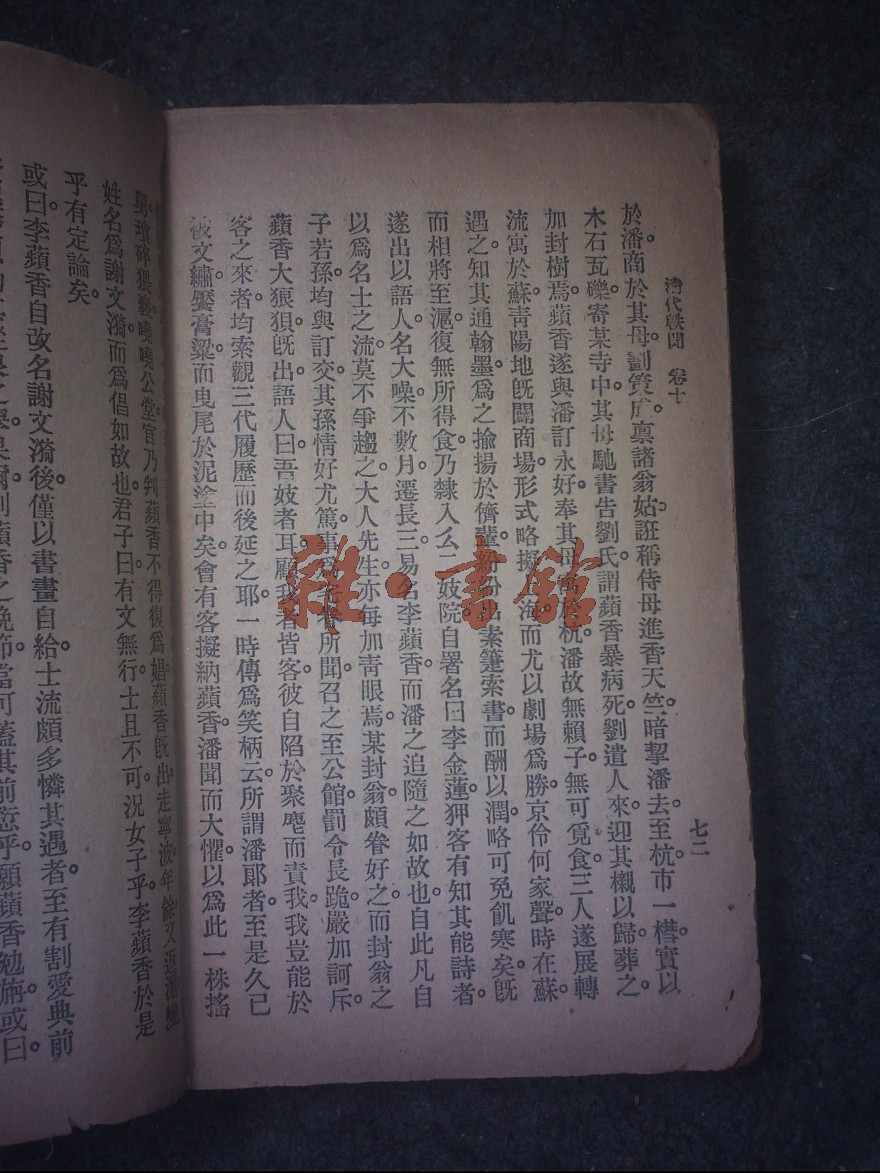 清代軼聞　卷十
七二
於潘。商於其母。劃策成。稟諸翁姑。誑稱侍母進香天竺。暗挈潘去。至杭。市一槥。實以
木石瓦礫。寄某寺中。其母馳書告劉氏。謂蘋香暴病死。劉遣人來。迎其櫬以歸。葬之。
加封樹焉。蘋香遂與潘訂永好。奉其母寓於杭。潘故無賴子。無可覓食。三人遂展轉
流寓於蘇。靑陽地旣闢商場。形式略擬上海。而尤以劇場爲勝。京伶何家聲時在蘇。
遇之。知其通翰墨。爲之揄揚於儕輩。紛紛出素箑索書。而酬以潤。略可免飢寒矣。旣
而相將至滬。復無所得食。乃隸入么二妓院。自署名曰李金蓮。狎客有知其能詩者。
遂出以語人。名大噪。不數月。遷長三。易名李蘋香。而潘之追隨之如故也。自此凡自
以爲名士之流。莫不爭趨之。大人先生。亦每加靑眼焉。某封翁頗眷好之。而封翁之
子若孫。均與訂交。其孫情好尤篤。事爲 所聞。召之至公館。罰令長跪。嚴加訶斥。
蘋香大狼狽。旣出。語人曰。吾妓者耳。顧我者皆客。彼自陷於聚麀。而責我。我豈能於
客之來者。均索觀三代履歷而後延之耶。一時傳爲笑柄云。所謂潘郞者。至是久已
被文繡。饜膏粱。而曳尾於泥塗中矣。會有客擬納蘋香。潘聞而大懼。以爲此一株搖
碎猥褻。嘵嘵公堂。官乃判蘋香不得復爲娼。蘋香旣出。走寧波。年餘。又返滬。變
姓名爲謝文漪。而爲倡如故也。君子曰。有文無行。士且不可。況女子乎。李蘋香於是
乎有定論矣。
或曰。李蘋香自改名謝文漪後。僅以書畫自給。士流頗多憐其遇者。至有割愛典前
則蘋香之晚節。當可蓋其前愆乎。願蘋香勉旃。或曰。
雜·書館